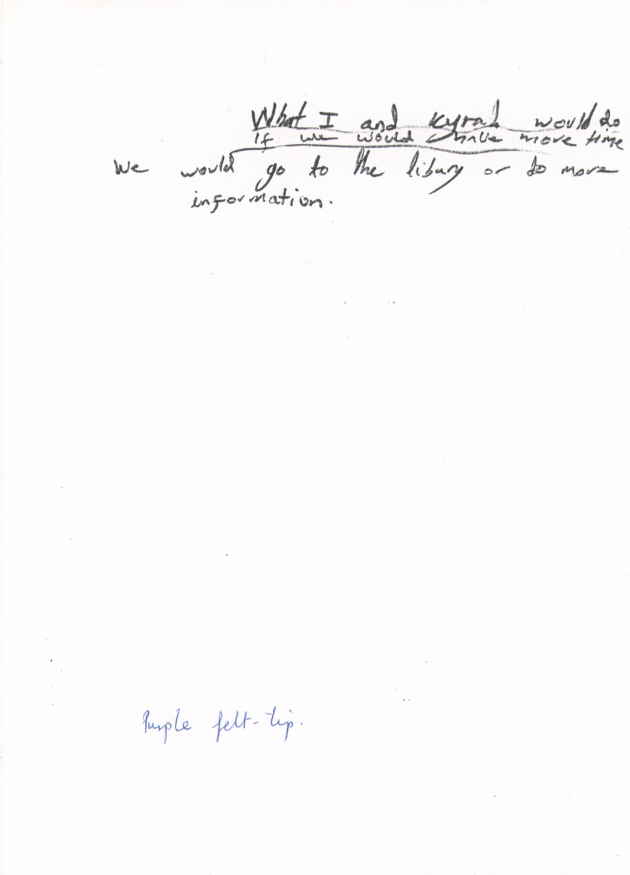 What I and Kyrah would do
if we would have more time
We would go to the libury or do more
information.
Purple felt-tip.